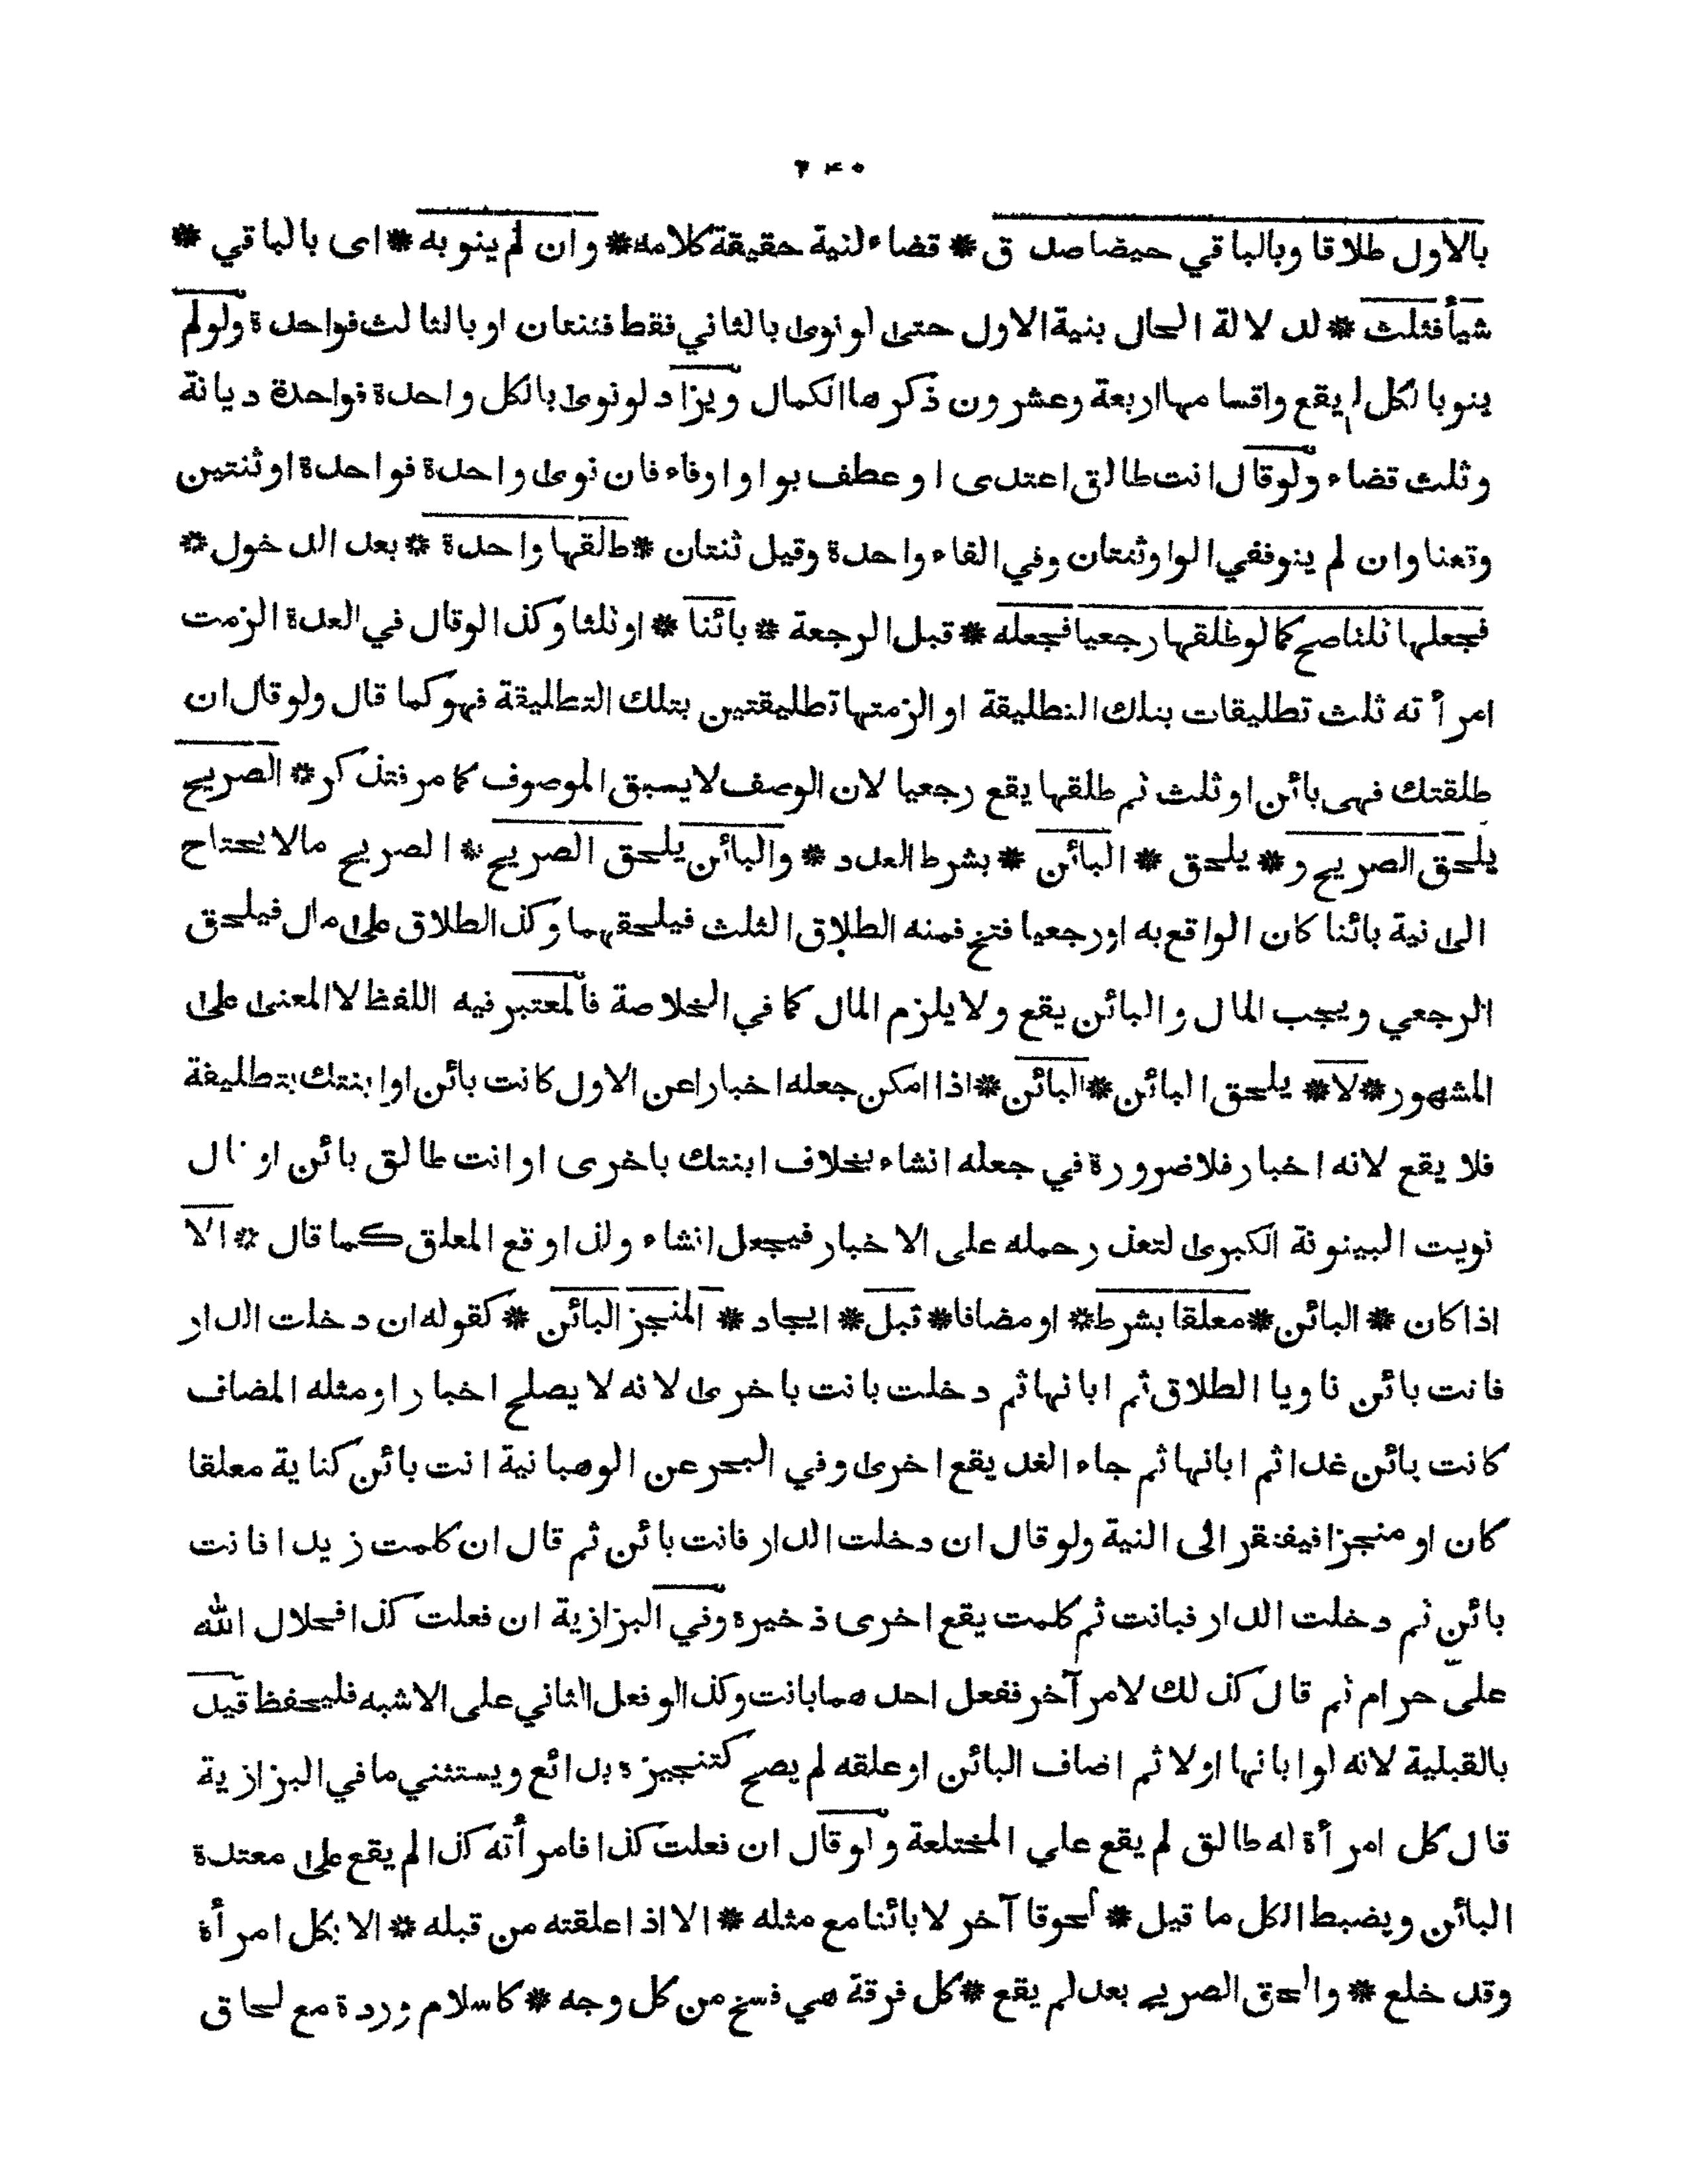 ٢٤٠
بالاول طلاقا وبالباقي حيضا صدق * قضاء لنية حقيقة كلامه * وان لم ينو به * اى بالباقي *
شيأ فثلث * لدلالة الحال بنية الاول حتى لو نوى بالثاني فقط فثنتان او بالثالث فواحدة ولو لم
ينو بالكل لم يقع واقسامها اربعة وعشرون ذكرها الكمال ويزاد لو نوى بالكل واحدة فواحدة ديانة
وثلث قضاء ولو قال انت طالق اعتدى او عطف بواو او فاء فان نوى واحدة فواحدة او ثنتين
وتعنا وان لم ينو ففي الواو ثنتان وفي الفاء واحدة وقيل ثنتان * طلقها واحدة * بعد الدخول *
فجعلها ثلثا صح كما لو طلقها رجعيا فجعله * قبل الرجعة * بائنا * او ثلثا وكذا لو قال في العدة الزمت
امرأته ثلث تطليقات بتلك التطليقة او الزمتها تطليقتين بتلك التطليقة فهو كما قال ولو قال ان
طلقتك فهى بائن او ثلث ثم طلقها يقع رجعيا لان الوصف لا يسبق الموصوف كما مر فتذكر * الصريح
يلحق الصريح و * يلحق * البائن * بشرط العدد * والبائن يلحق الصريح * الصريح مالا يحتاح
الى نية بائنا كان الواقع به او رجعيا فتح فمنه الطلاق الثلث فيلحقهما وكذ الطلاق على مال فيلحق
الرجعي ويجب المال والبائن يقع ولا يلزم المال كما في الخلاصة فالمعتبر فيه اللفظ لا المعنى على
المشهور * لا * يلحق البائن * البائن * اذا امكن جعله اخبارا عن الاول كانت بائن او ابنتك بتطليقة
فلا يقع لانه اخبار فلا ضرورة في جعله انشاء بخلاف ابنتك باخرى او انت طالق بائن او قال
نويت البينونة الكبرى لتعذر حمله على الاخبار فيجعل انشاء ولذا وقع المعلق كما قال * الا
اذا كان * البائن * معلقا بشرط * او مضافا * قبل * ايجاد * المنجز البائن * كقوله ان دخلت الدار
فانت بائن ناويا الطلاق ثم ابانها ثم دخلت بانت باخرى لانه لا يصلح اخبارا ومثله المضاف
كانت بائن غدا ثم ابانها ثم جاء الغد يقع اخرى وفي البحر عن الوهبانية انت بائن كناية معلقا
كان او منجزا فيفتقر الى النية ولو قال ان دخلت الدار فانت بائن ثم قال ان كلمت زيدا فانت
بائن ثم دخلت الدار فبانت ثم كلمت يقع اخرى ذخيرة وفي البزازية ان فعلت كذا فحلال الله
علىّ حرام ثم قال كذلك لامر آخر ففعل احدهما بانت وكذا لو فعل الثاني على الاشبه فليحفظ قيد
بالقبلية لانه لو ابانها اولا ثم اضاف البائن او علقه لم يصح كتنجيزه بدائع ويستثني ما في البزازية
قال كل امرأة له طالق لم يقع علي المختلعة ولو قال ان فعلت كذا فامرأته كذا لم يقع على معتدة
البائن ويضبط الكل ما قيل * لحوقا آخر لا بائنا مع مثله * الا اذا علقته من قبله * الا بكل امرأة
وقد خلع * والحق الصريح بعد لم يقع * كل فرقة هي فسخ من كل وجه * كاسلام وردة مع لحاق